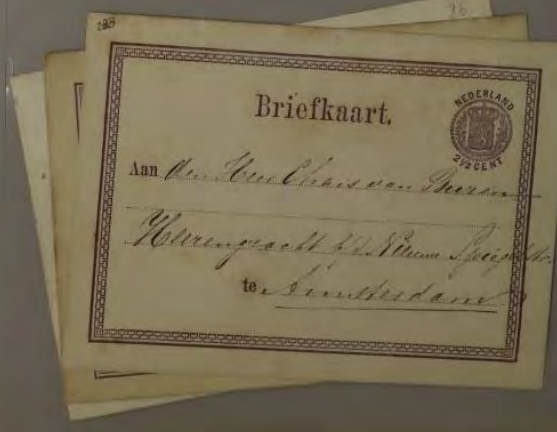 28
Briefkaart.
NEDERLAND
2½ CENT
Aan den Heer Chais van Buren
Heerengracht b/d Nieuwe Spiegelstr.
te Amsterdam